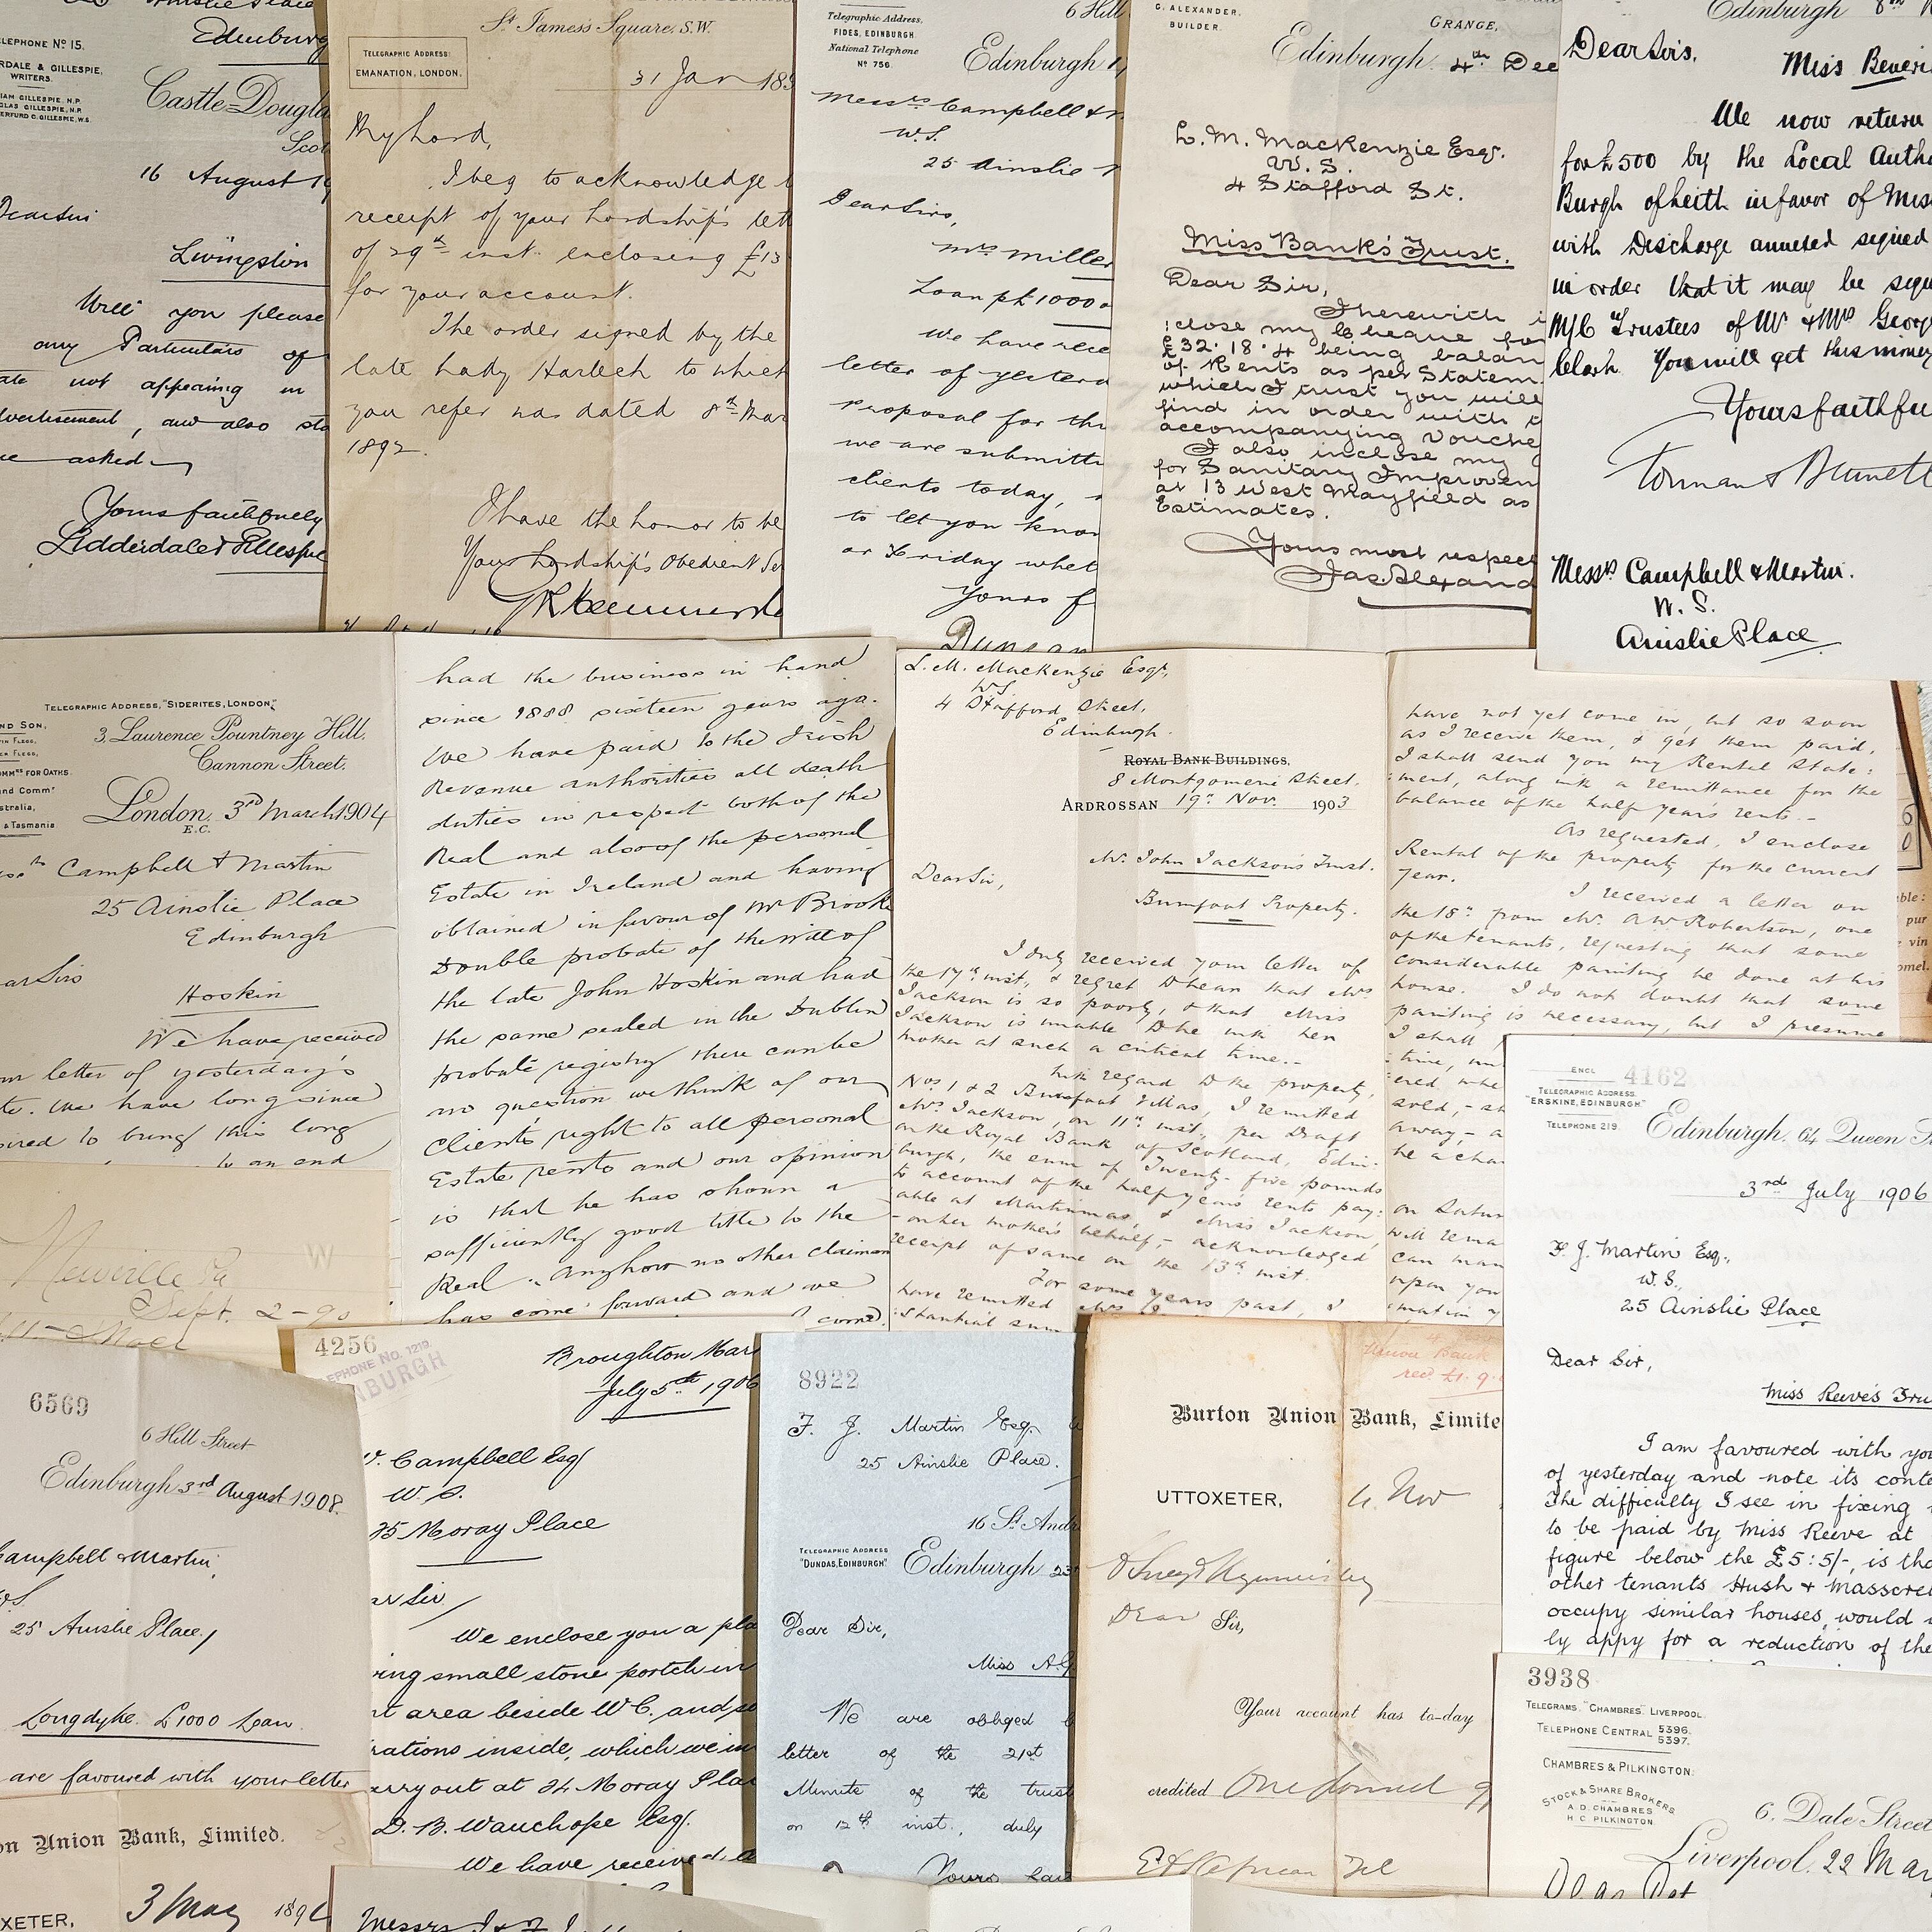 Ainslie Place
Edinburg
TELEPHONE No 15.
RDALE & GILLESPIE,
WRITERS.
IAM GILLESPIE, N.P.
GLAS GILLESPIE, N.P.
ERFURD C. GILLESPIE, W.S.
Castle Dougla
Scot
16 August 19
Dear Sir
Livingston
Will you please
any Particulars of
ate not appearing in
dvertisement, and also sta
ce asked
Yours faithfully
Lidderdale & Gillespie
St. James's Square, S.W.
TELEGRAPHIC ADDRESS:
EMANATION, LONDON.
31 Jan 189
My Lord,
I beg to acknowledge
receipt of your Lordship's lett
of 29th inst. enclosing £13
for your account.
The order signed by the
late Lady Harlech to which
you refer was dated 8th Mar
1892.
I have the honor to be
Your Lordship's Obedient Se
Telegraphic Address,
FIDES, EDINBURGH.
National Telephone
No 756.
6 Hill
Edinburgh
Messrs Campbell &
W.S.
25 Ainslie
Dear Sirs,
Mrs Miller
Loan of £1000
We have rece
letter of yesterd
proposal for the
we are submitti
clients today,
to let you know
or Friday whet
Yours f
Duncan
G. ALEXANDER.
BUILDER.
GRANGE,
Edinburgh 4th Dec
L. M. Mackenzie Esqr.
W. S.
4 Stafford St.
Miss Bank's Trust.
Dear Sir,
Iherewith i
:close my Cheque for
£32.18.4 being balan
of Rents as per Statem
which I trust you will
find in order with t
accompanying Vouche
I also inclose my
for Sanitary Improvem
at 13 West Mayfield as
Estimates.
Yours most respec
Jas. Alexand
Edinburgh 8th
Dear Sirs,
Miss Beveri
We now return
for £500 by the Local Autho
Burgh of Leith in favor of Miss
with Discharge annexed signed
in order that it may be sign
M/C Trustees of Mr & Mrs Georg
Clark. You will get this money
Yours faithfu
Messrs Campbell & Martin.
W. S.
Ainslie Place
TELEGRAPHIC ADDRESS, "SIDERITES, LONDON,"
ND SON,
3, Laurence Pountney Hill.
Cannon Street.
COMMRS FOR OATHS.
nd Commr
stralia,
& Tasmania
London, 3rd March 1904
E.C.
Campbell & Martin
25 Ainslie Place
Edinburgh
ear Sirs
Hoskin
We have received
ur letter of yesterday's
te. We have long since
sired to bring this long
to an end
had the business in hand
since 1888 sixteen years ago.
We have paid to the Irish
Revenue authorities all death
duties in respect both of the
Real and also of the personal
Estate in Ireland and having
obtained in favour of Mr Brook
Double probate of the Will of
the late John Hoskin and had
the same sealed in the Dublin
probate registry there can be
no question we think of our
clients right to all personal
Estate rents and our opinion
is that he has shown a
sufficiently good title to the
Real. Anyhow no other claiman
has come forward and we
L. M. Mackenzie Esqr.,
WS
4 Stafford Street,
Edinburgh.
ROYAL BANK BUILDINGS,
8 Montgomerie Street.
ARDROSSAN 19th Nov. 1903
Mr. John Jackson's Trust.
Dear Sir,
Burnfoot Property.
I duly received your letter of
the 17th inst, & regret to hear that Mrs
Jackson is so poorly, & that Miss
Jackson is unable to be with her
mother at such a critical time.-
With regard to the property,
Nos 1 & 2 Burnfoot Villas, I remitted
Mrs Jackson, on 11th inst, per Draft
on the Royal Bank of Scotland, Edin-
burgh, the sum of Twenty-five pounds
to account of the half year's rents pay:
able at Martinmas, & Miss Jackson,
-on her mother's behalf,- acknowledged
receipt of same on the 13th inst.
For some years past, I
have remitted Mrs
:stantial sum
have not yet come in, but so soon
as I receive them, & get them paid,
I shall send you my Rental State:
:ment, along with a remittance for the
balance of the half year's rents.-
As requested, I enclose
Rental of the property for the current
year.
I received a letter on
the 18th from Mr. A W Robertson, one
of the tenants, requesting that some
considerable painting be done at his
house. I do not doubt that some
painting is necessary, but I presume
I shall
time, un
:ered, whe
sold, - sh
away, - a
be a cha
on Satur
will rema
can man
upon you
:mation
ble :
pur
vin
omel.
ENCL
4162
TELEGRAPHIC ADDRESS.
"ERSKINE, EDINBURGH."
TELEPHONE 219.
Edinburgh. 64 Queen S
3rd July 1906
F. J. Martin Esq.,
W. S.,
25 Ainslie Place
Dear Sir,
Miss Reeve's Tru
I am favoured with you
of yesterday and note its conte
The difficulty I see in fixing
to be paid by Miss Reeve at
figure below the £5:5/-, is tha
other tenants Hush & Masscre
occupy similar houses, would
ly appy for a reduction of the
Newville Pa
Sept. 2-90
W
6569
6 Hill Street
Edinburgh 3rd August 1908.
Campbell & Martin,
WS
25 Ainslie Place,
Longdyke. £1000 Loan.
are favoured with your letter
4256
EPHONE No. 1219.
NBURGH
Broughton Mar
July 5th 1906
Campbell Esq
W. S.
25 Moray Place
ar Sir
We enclose you a pla
ing small stone porch in
t area beside W C. and so
rations inside, which we in
arry out at 24 Moray Plac
D. B. Wauchope Esq.
We have received a
8922
F. J. Martin Esq.
25 Ainslie Place.
16 St. Andr
TELEGRAPHIC ADDRESS
"DUNDAS, EDINBURGH"
Edinburgh 23
Dear Sir,
Miss A.G
We are obliged
letter of the 21st
Minute of the trust
on 12th inst., duly
Yours fai
Union Bank
Burton Union Bank, Limite
UTTOXETER, 4 Nov
Dear Sir,
Your account has to-day
credited One
3938
TELEGRAMS, "CHAMBRES" LIVERPOOL.
TELEPHONE CENTRAL 5396.
5397.
CHAMBRES & PILKINGTON.
STOCK & SHARE BROKERS
A. D. CHAMBRES
H. C. PILKINGTON
6, Dale Street
Liverpool, 22 Mar
on Union Bank, Limited.
XETER, 3 May 189
Messrs